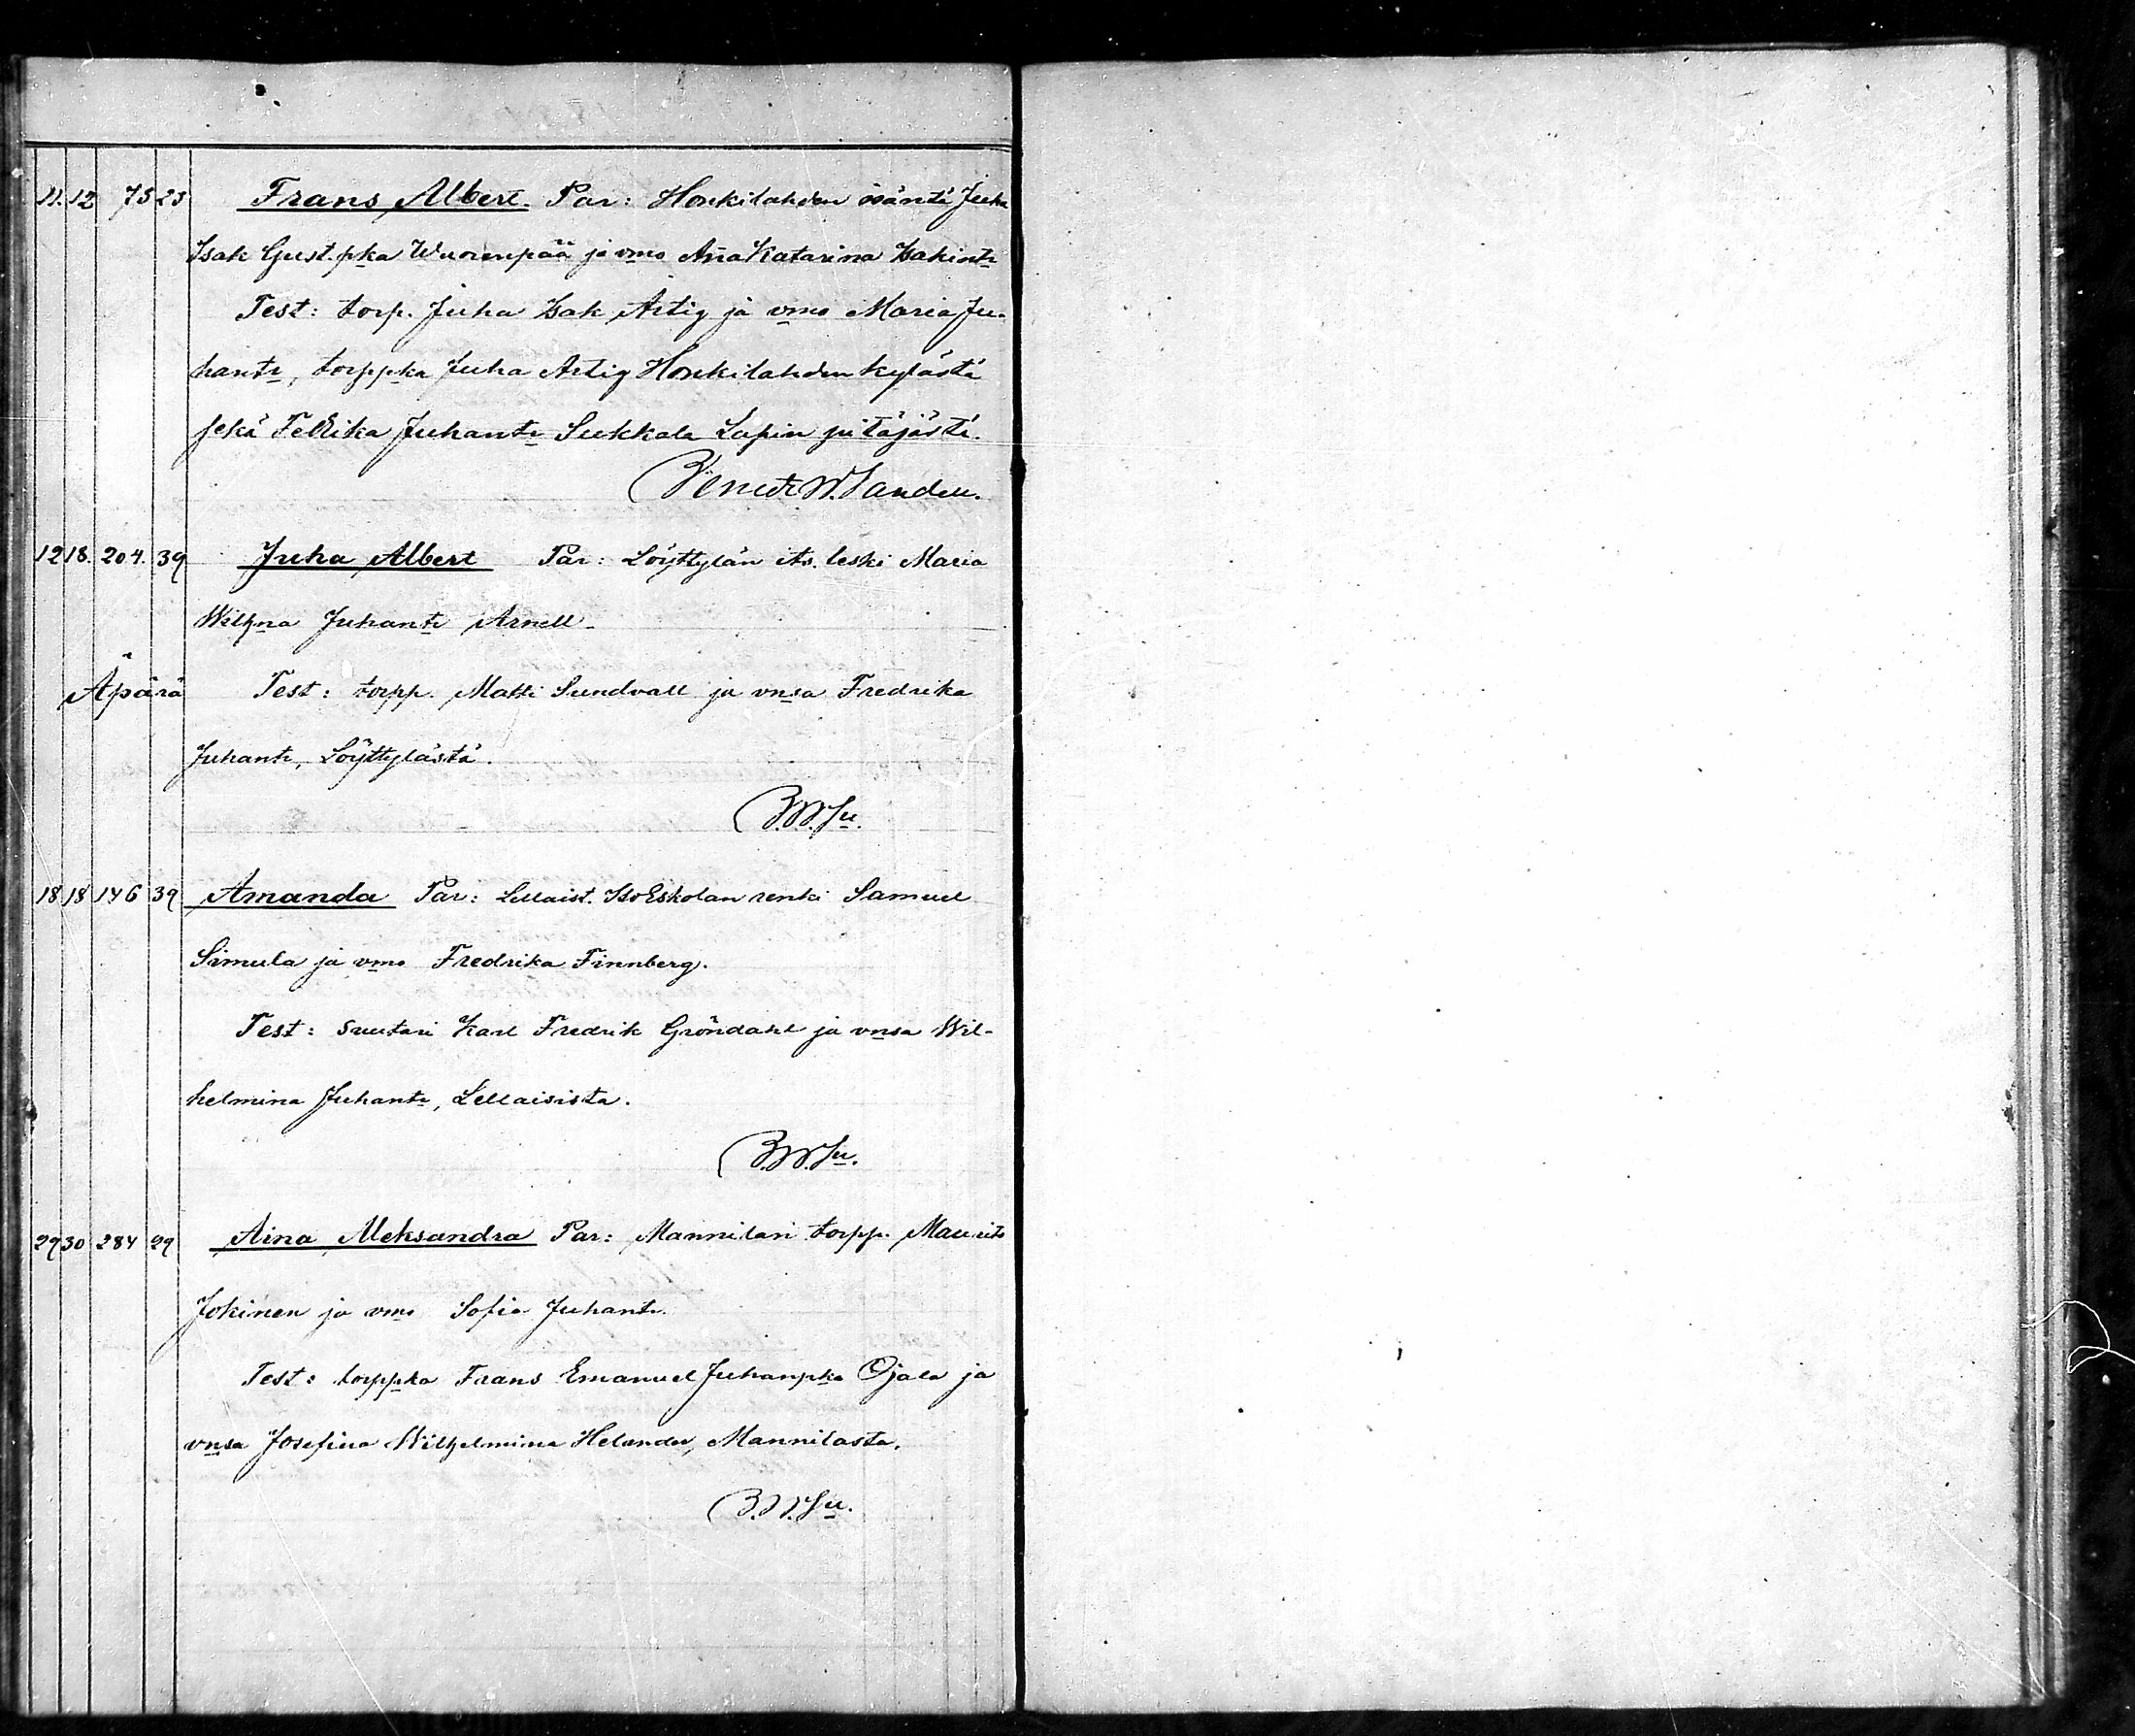 11. 12 75 23 Frans Albert. Par: Honkilahden isäntä Juha
Isak Gust.pka Wuorenpää ja vmo Aña Katarina Isakintr
Test: torp. Juha Isak Artig ja vmo Maria Ju-
hantr, torppka Juha Artig Honkilahden kylästä
sekä Juhantr Sukkala Lapin pitäjästä.
12 18. 204. 39 Juha Albert Par: Löyttylän its. leski Maria
Wilhna Juhantr Arnell.
Äpärä Test: torpp. Matti Sundvall ja vnsa Fredrika
Juhantr, Löyttylästä.
B.W.Su.
18 18 146 39 Amanda Par: Lellaist. IsoEskolan renki Samuel
Simula ja vmo Fredrika Finnberg.
Test: suutari Karl Fredrik Gröndahl ja vnsa Wil-
helmina Juhantr, Lellaisista.
B.W.Su.
29 30 284 29 Aina Aleksandra Par: Mannilan torpp. Maurits
Jokinen ja vmo Sofia Juhantr.
Test: torppka Frans Emanuel Juhanpka Ojala ja
vnsa Josefina Wilhelmina Helander, Mannilasta.
B.W.Su.